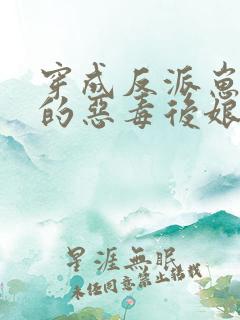 穿成反派崽
的惡毒後娘
星涯無眠
未經同意禁止轉載